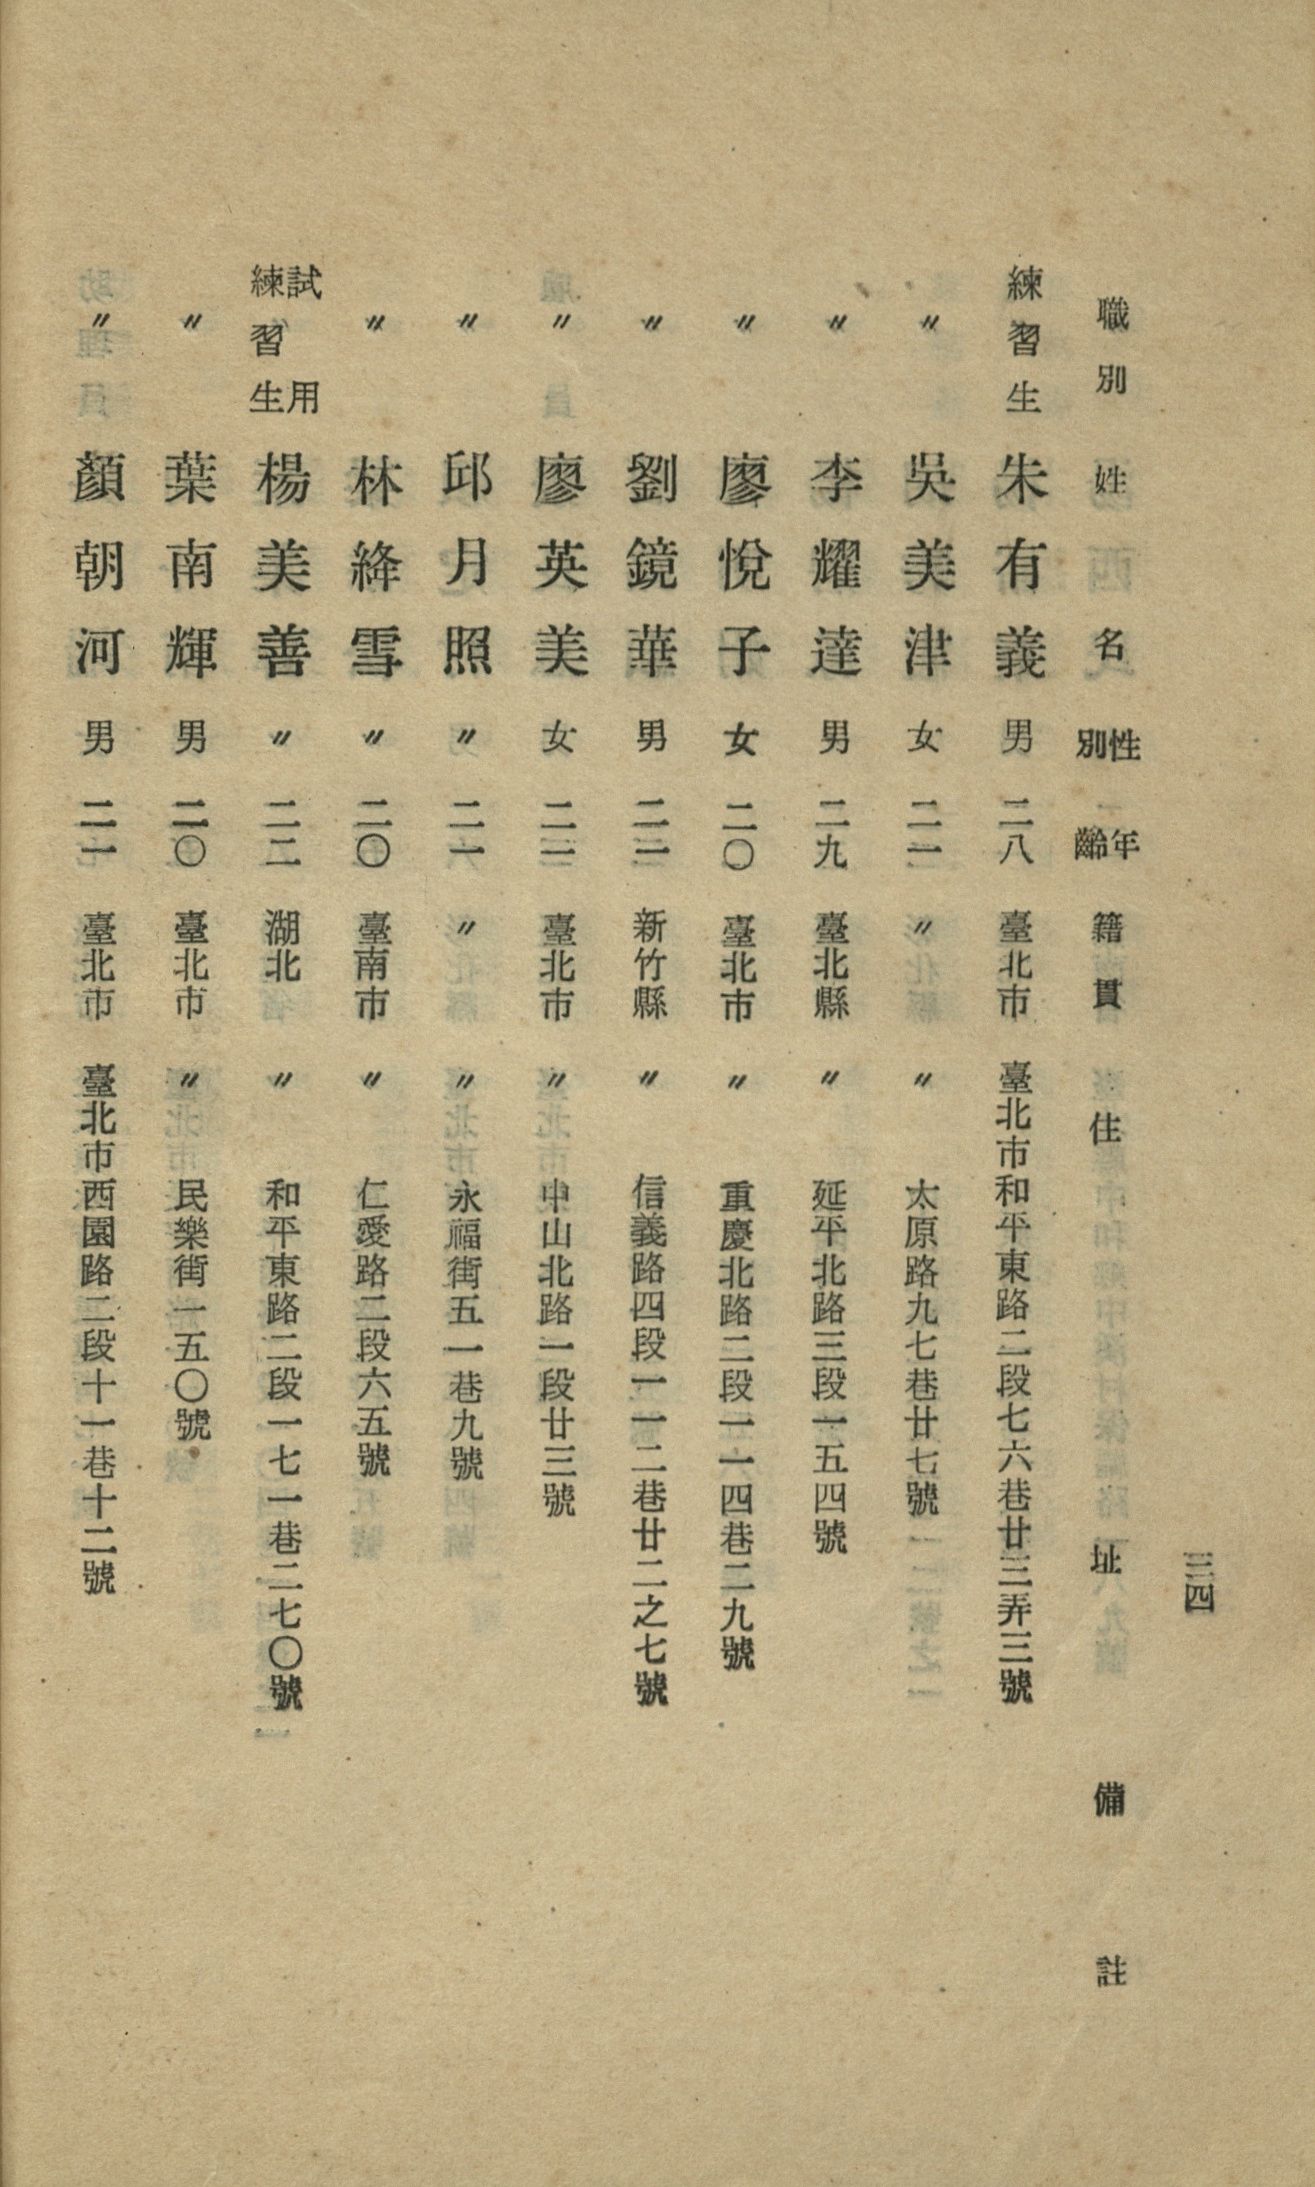 三四
職別 姓名 性別 年齡 籍貫 住址 備註
練習生 朱有義 男 二八 臺北市 臺北市和平東路二段七六巷廿三弄三號
〃 吳美津 女 二一 〃 〃 太原路九七巷廿七號
〃 李耀達 男 二九 臺北縣 〃 延平北路三段一五四號
〃 廖悅子 女 二〇 臺北市 〃 重慶北路二段一一四巷二九號
〃 劉鏡華 男 二二 新竹縣 〃 信義路四段一一二巷廿二之七號
〃 廖英美 女 二二 臺北市 〃 中山北路一段廿三號
〃 邱月照 〃 二一 〃 〃 永福街五一巷九號
〃 林絳雪 〃 二〇 臺南市 〃 仁愛路二段六五號
試用練習生 楊美善 〃 二二 湖北 〃 和平東路二段一七一巷二七〇號
〃 葉南輝 男 二〇 臺北市 〃 民樂街一五〇號
〃 顏朝河 男 二一 臺北市 臺北市西園路二段十一巷十二號